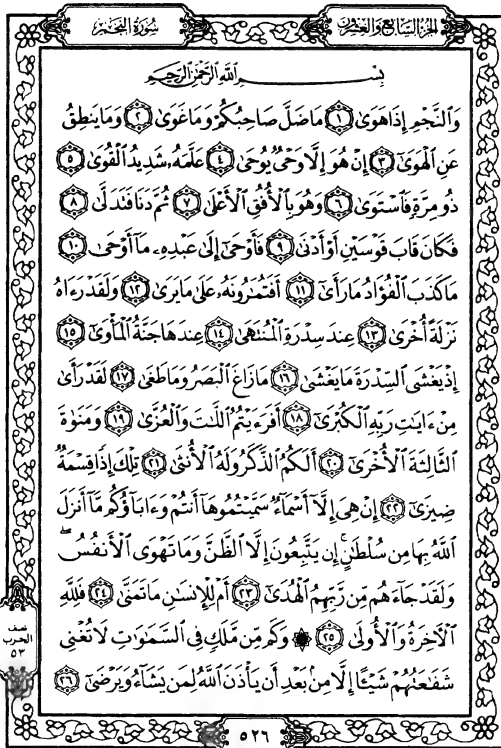 الجزء السابع والعشرون
سورة النجم
بِسْمِ اللَّهِ الرَّحْمَٰنِ الرَّحِيمِ
وَالنَّجْمِ إِذَا هَوَىٰ ١ مَا ضَلَّ صَاحِبُكُمْ وَمَا غَوَىٰ ٢ وَمَا يَنطِقُ
عَنِ الْهَوَىٰ ٣ إِنْ هُوَ إِلَّا وَحْيٌ يُوحَىٰ ٤ عَلَّمَهُ شَدِيدُ الْقُوَىٰ ٥
ذُو مِرَّةٍ فَاسْتَوَىٰ ٦ وَهُوَ بِالْأُفُقِ الْأَعْلَىٰ ٧ ثُمَّ دَنَا فَتَدَلَّىٰ ٨
فَكَانَ قَابَ قَوْسَيْنِ أَوْ أَدْنَىٰ ٩ فَأَوْحَىٰ إِلَىٰ عَبْدِهِ مَا أَوْحَىٰ ١٠
مَا كَذَبَ الْفُؤَادُ مَا رَأَىٰ ١١ أَفَتُمَارُونَهُ عَلَىٰ مَا يَرَىٰ ١٢ وَلَقَدْ رَءَاهُ
نَزْلَةً أُخْرَىٰ ١٣ عِندَ سِدْرَةِ الْمُنتَهَىٰ ١٤ عِندَهَا جَنَّةُ الْمَأْوَىٰ ١٥
إِذْ يَغْشَى السِّدْرَةَ مَا يَغْشَىٰ ١٦ مَا زَاغَ الْبَصَرُ وَمَا طَغَىٰ ١٧ لَقَدْ رَأَىٰ
مِنْ ءَايَٰتِ رَبِّهِ الْكُبْرَىٰ ١٨ أَفَرَءَيْتُمُ اللَّٰتَ وَالْعُزَّىٰ ١٩ وَمَنَوٰةَ
الثَّالِثَةَ الْأُخْرَىٰ ٢٠ أَلَكُمُ الذَّكَرُ وَلَهُ الْأُنثَىٰ ٢١ تِلْكَ إِذًا قِسْمَةٌ
ضِيزَىٰ ٢٢ إِنْ هِيَ إِلَّا أَسْمَاءٌ سَمَّيْتُمُوهَا أَنتُمْ وَءَابَاؤُكُم مَّا أَنزَلَ
اللَّهُ بِهَا مِن سُلْطَٰنٍ ۚ إِن يَتَّبِعُونَ إِلَّا الظَّنَّ وَمَا تَهْوَى الْأَنفُسُ ۖ
وَلَقَدْ جَاءَهُم مِّن رَّبِّهِمُ الْهُدَىٰ ٢٣ أَمْ لِلْإِنسَٰنِ مَا تَمَنَّىٰ ٢٤ فَلِلَّهِ
الْءَاخِرَةُ وَالْأُولَىٰ ٢٥ ۞ وَكَم مِّن مَّلَكٍ فِي السَّمَٰوَٰتِ لَا تُغْنِي
شَفَٰعَتُهُمْ شَيْـًٔا إِلَّا مِن بَعْدِ أَن يَأْذَنَ اللَّهُ لِمَن يَشَاءُ وَيَرْضَىٰ ٢٦
نصف
الحزب
٥٣
٥٢٦